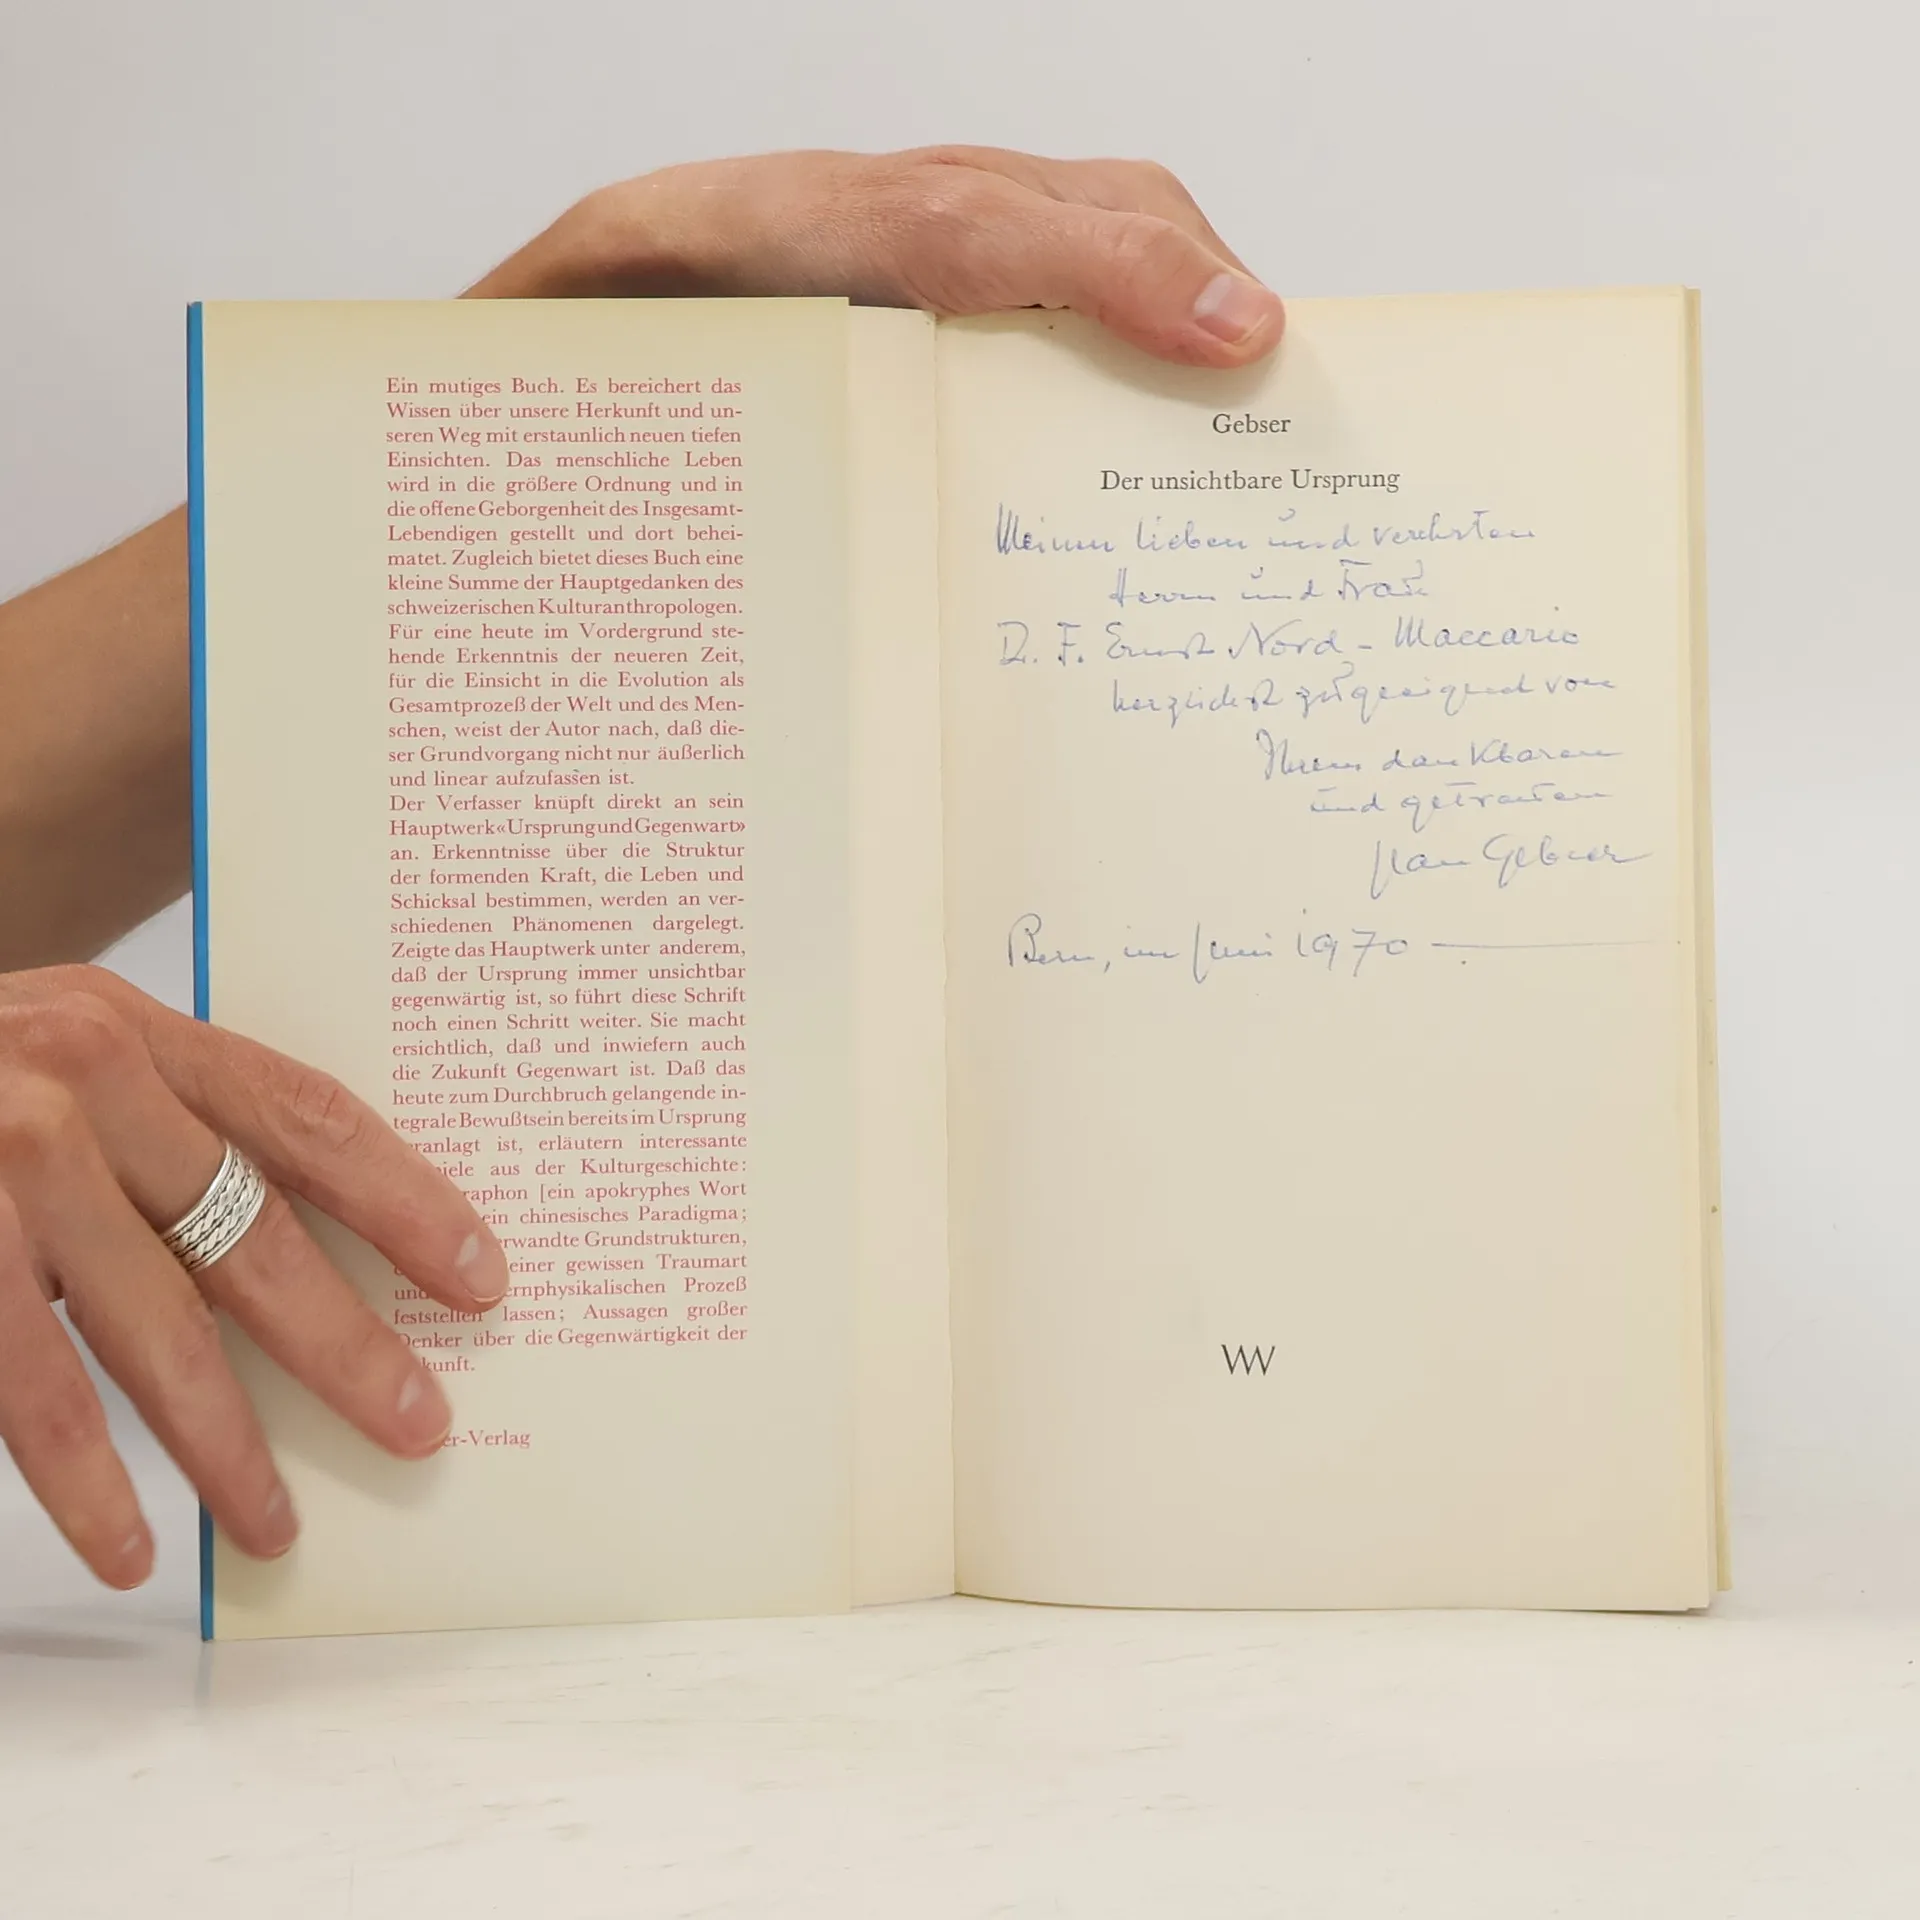 Ein mutiges Buch. Es bereichert das
Wissen über unsere Herkunft und un-
seren Weg mit erstaunlich neuen tiefen
Einsichten. Das menschliche Leben
wird in die größere Ordnung und in
die offene Geborgenheit des Insgesamt-
Lebendigen gestellt und dort behei-
matet. Zugleich bietet dieses Buch eine
kleine Summe der Hauptgedanken des
schweizerischen Kulturanthropologen.
Für eine heute im Vordergrund ste-
hende Erkenntnis der neueren Zeit,
für die Einsicht in die Evolution als
Gesamtprozeß der Welt und des Men-
schen, weist der Autor nach, daß die-
ser Grundvorgang nicht nur äußerlich
und linear aufzufassen ist.
Der Verfasser knüpft direkt an sein
Hauptwerk «Ursprung und Gegenwart»
an. Erkenntnisse über die Struktur
der formenden Kraft, die Leben und
Schicksal bestimmen, werden an ver-
schiedenen Phänomenen dargelegt.
Zeigte das Hauptwerk unter anderem,
daß der Ursprung immer unsichtbar
gegenwärtig ist, so führt diese Schrift
noch einen Schritt weiter. Sie macht
ersichtlich, daß und inwiefern auch
die Zukunft Gegenwart ist. Daß das
heute zum Durchbruch gelangende in-
tegrale Bewußtsein bereits im Ursprung
ranlagt ist, erläutern interessante
iele aus der Kulturgeschichte:
raphon [ein apokryphes Wort
ein chinesisches Paradigma;
rwandte Grundstrukturen,
einer gewissen Traumart
und ernphysikalischen Prozeß
feststellen lassen; Aussagen großer
Denker über die Gegenwärtigkeit der
kunft.
er-Verlag
Gebser
Der unsichtbare Ursprung
Meinen lieben und verehrten
Herrn und Frau
D. F. Ernst Nord - Maccario
herzlichst zugeeignet von
Ihrem dankbaren
und getreuen
Jean Gebser
Bern, im Juni 1970
VW